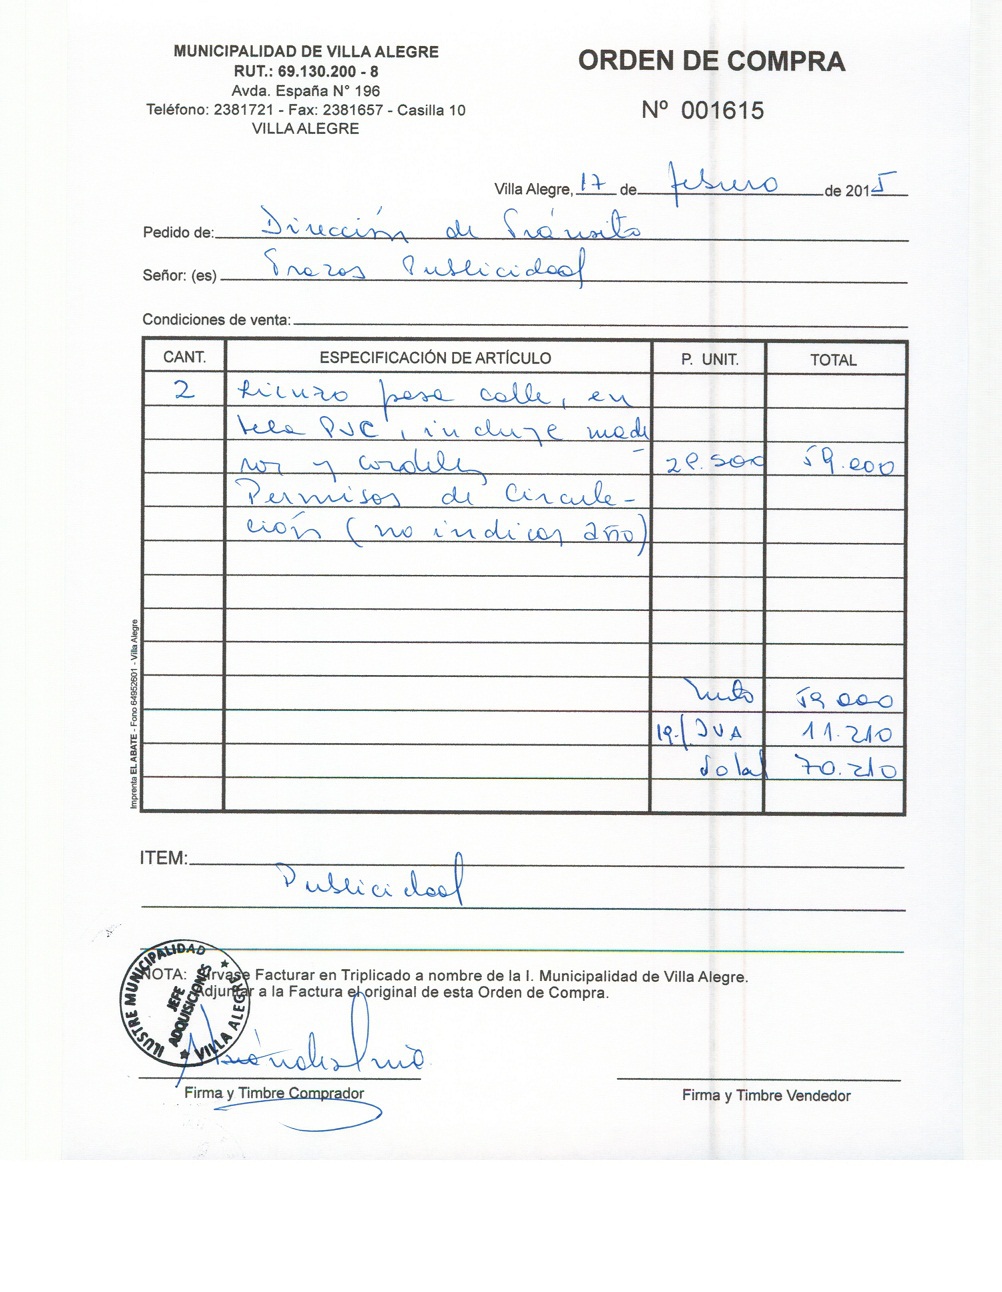 MUNICIPALIDAD DE VILLA ALEGRE
RUT.: 69.130.200 - 8
Avda. España N° 196
Teléfono: 2381721 - Fax: 2381657 - Casilla 10
VILLA ALEGRE
ORDEN DE COMPRA
Nº 001615
Villa Alegre, 17 de febrero de 2015
Pedido de: Dirección de Tránsito
Señor: (es) Trazos Publicidad
Condiciones de venta:
CANT. ESPECIFICACIÓN DE ARTÍCULO P. UNIT. TOTAL
2 Lienzo pasa calle, en
tela PVC, incluye made
ras y cordeles 29.500 59.000
Permisos de Circula-
ción (no indicar año)
Neto 59.000
19% IVA 11.210
Total 70.210
Imprenta EL ABATE - Fono 64952601 - Villa Alegre
ITEM:
Publicidad
NOTA: Sírvase Facturar en Triplicado a nombre de la I. Municipalidad de Villa Alegre.
Adjuntar a la Factura el original de esta Orden de Compra.
ILUSTRE MUNICIPALIDAD
JEFE
ADQUISICIONES
★ VILLA ALEGRE ★
Firma y Timbre Comprador
Firma y Timbre Vendedor